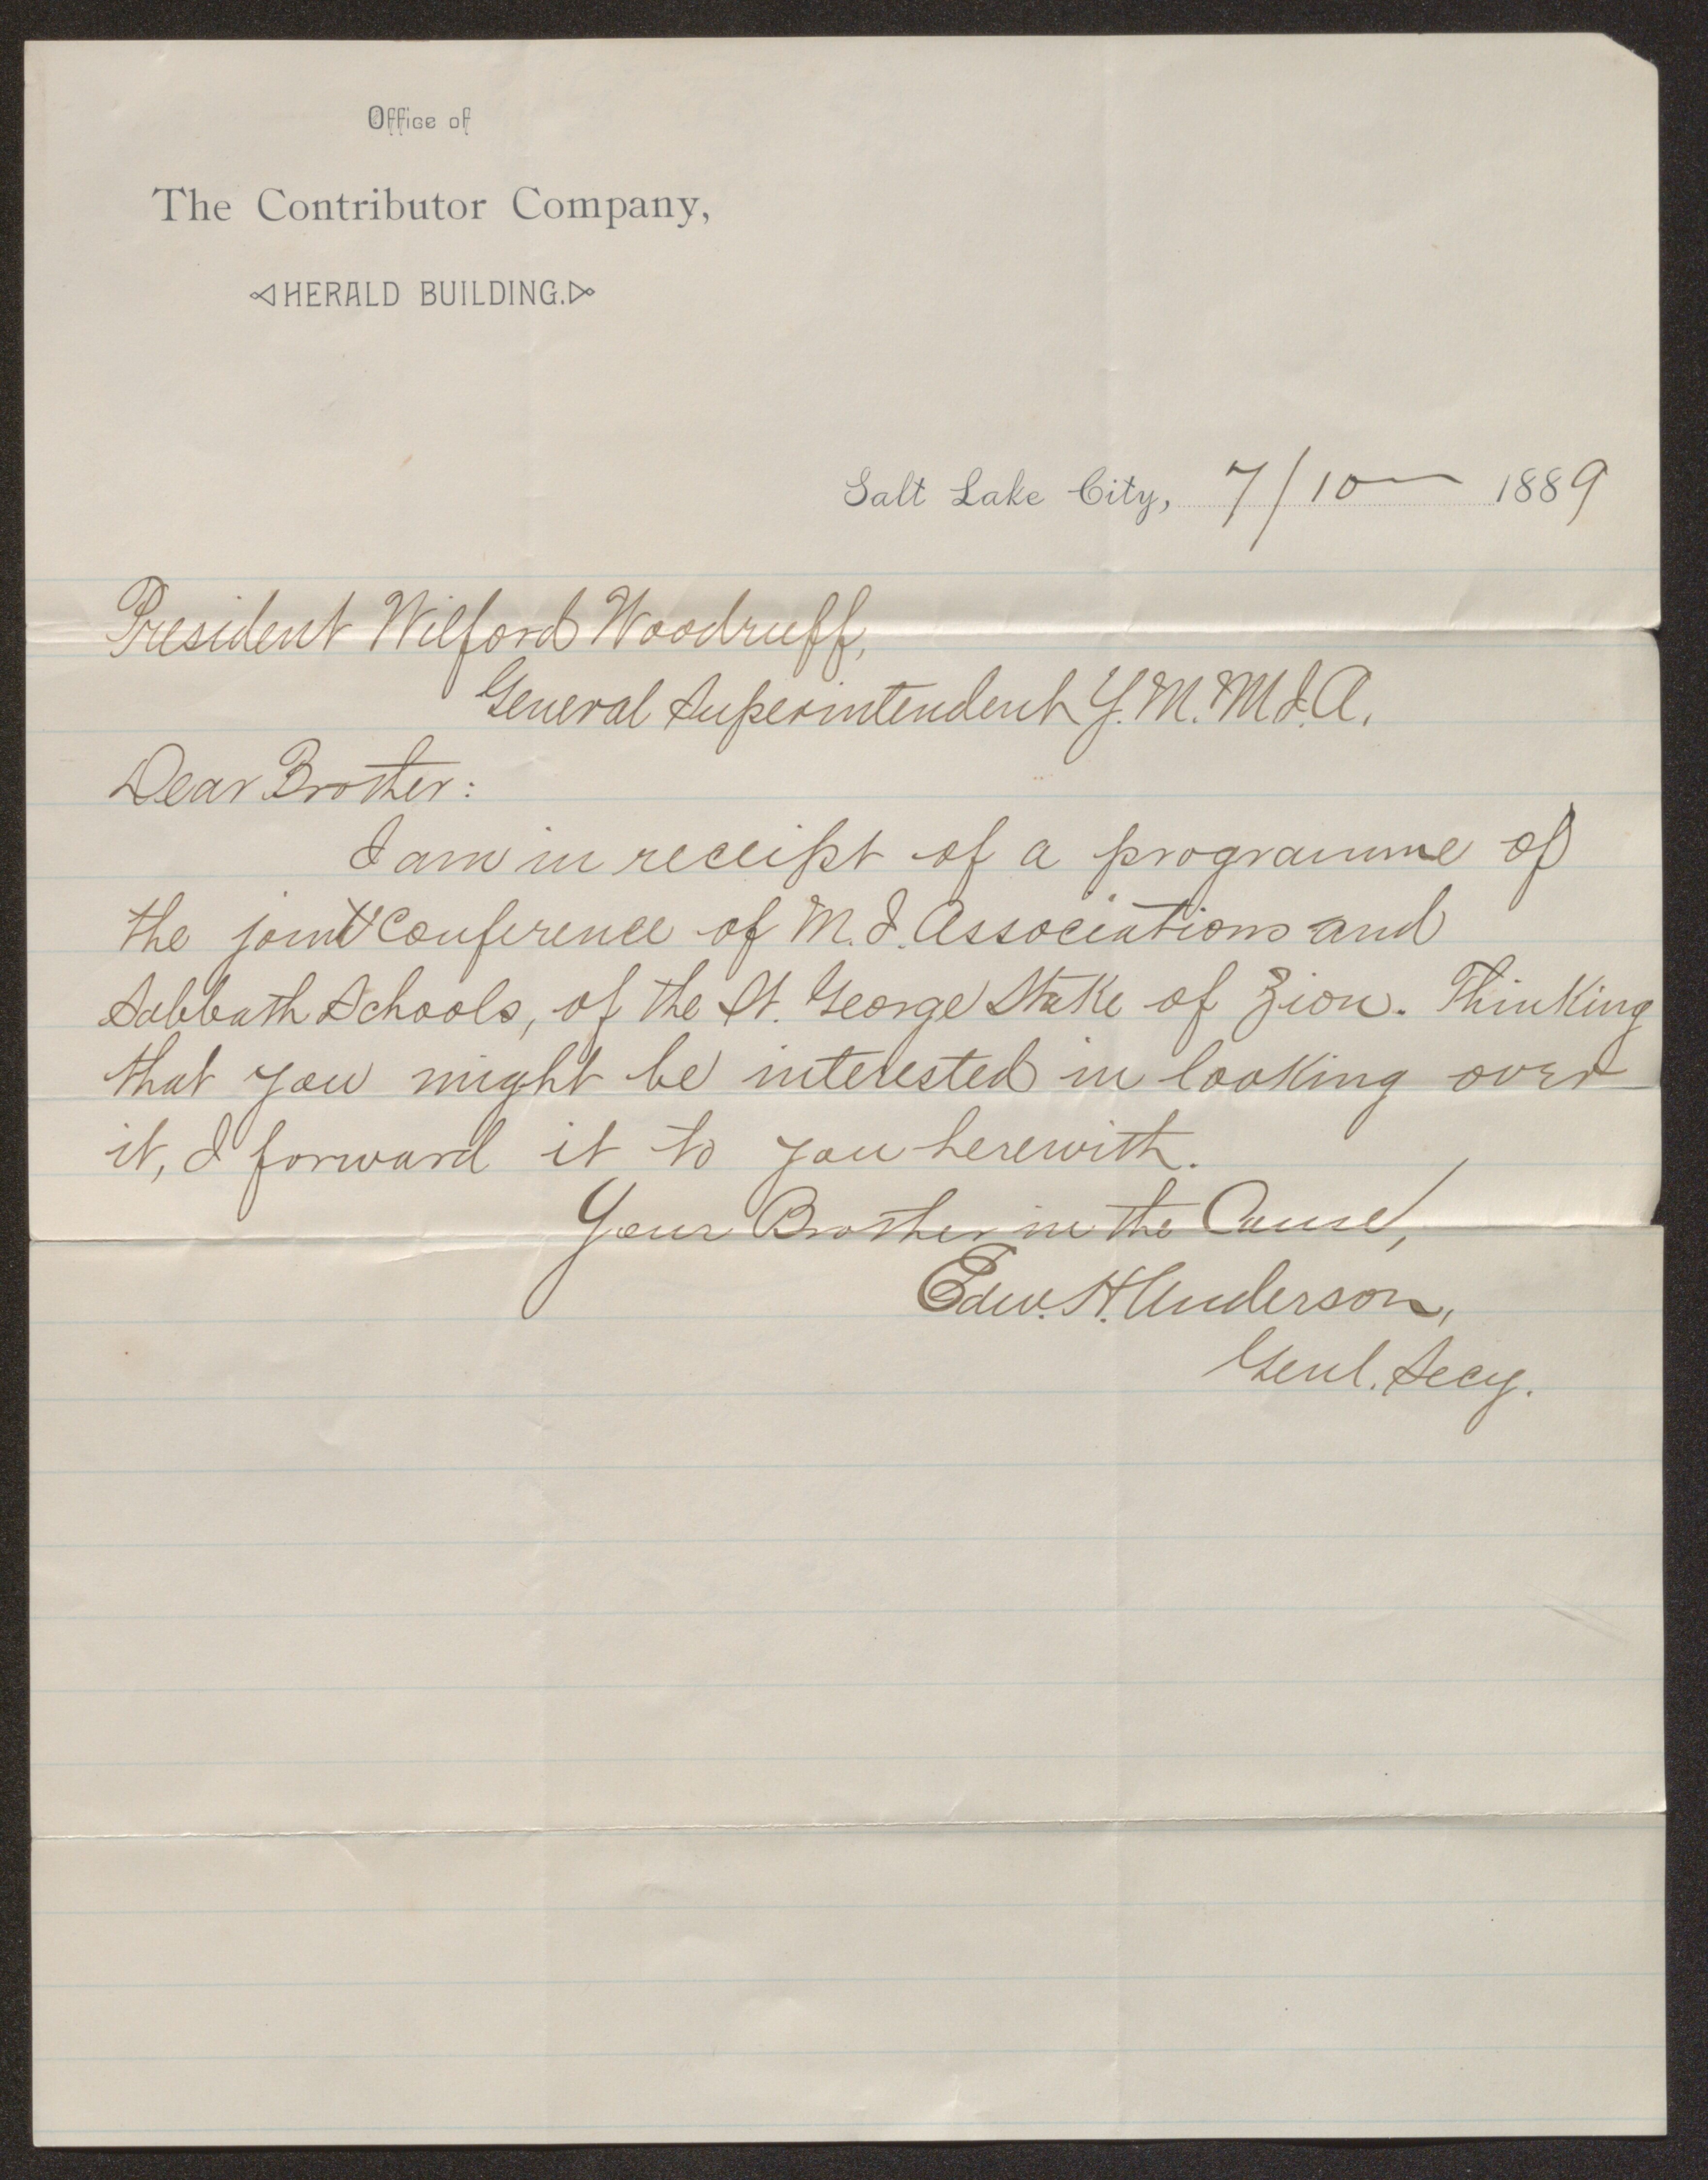 Office of
The Contributor Company,
HERALD BUILDING.
Salt Lake City, 7/10 1889
President Wilford Woodruff,
General Superintendent Y.M.M.I.A.
Dear Brother:
I am in receipt of a programme of
the joint Conference of M.I. Associations and
Sabbath Schools, of the St. George Stake of Zion. Thinking
that you might be interested in looking over
it, I forward it to you herewith.
Your Brother in the Cause,
Edw. H. Anderson,
Genl. Secy.